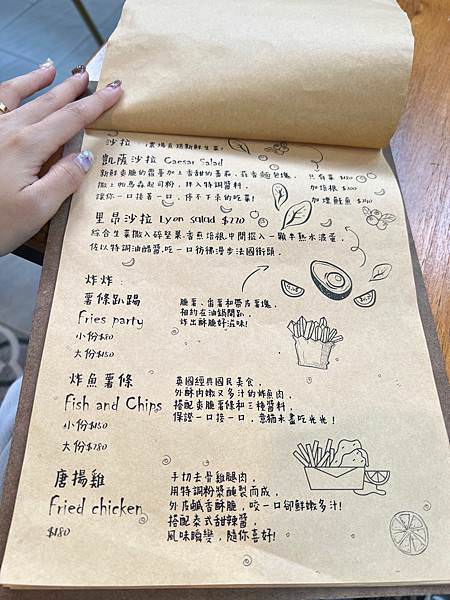 沙拉 (農場直送新鮮生菜)
凱薩沙拉 Caesar Salad
新鮮爽脆的蘿蔓加上香甜的番茄、蒜香麵包塊， 只有菜 $180
撒上帕馬森起司粉，拌入特調醬料， 加培根 $200
讓你一口接著一口，停不下來的吃菜! 加燻鮭魚 $240
里昂沙拉 Lyon salad $220
綜合生菜撒入碎堅果、香煎培根，中間擺入一顆半熟水波蛋，
佐以特調油醋醬，吃一口彷彿漫步法國街頭。
炸炸：
薯條趴踢
Fries party
小份$80
大份$150
脆薯、番薯和帶皮薯塊，
相約在油鍋開趴，
炸出酥脆好滋味!
炸魚薯條
Fish and Chips
小份$150
大份$280
英國經典國民美食，
外酥內嫩又多汁的炸魚肉，
搭配爽脆薯條和三種醬料，
保證一口接一口，意猶未盡吃光光！
唐揚雞
Fried chicken
$180
手切去骨雞腿肉，
用特調粉漿醃製而成，
外皮鹹香酥脆，咬一口卻鮮嫩多汁!
搭配泰式甜辣醬，
風味瞬變，隨你喜好!